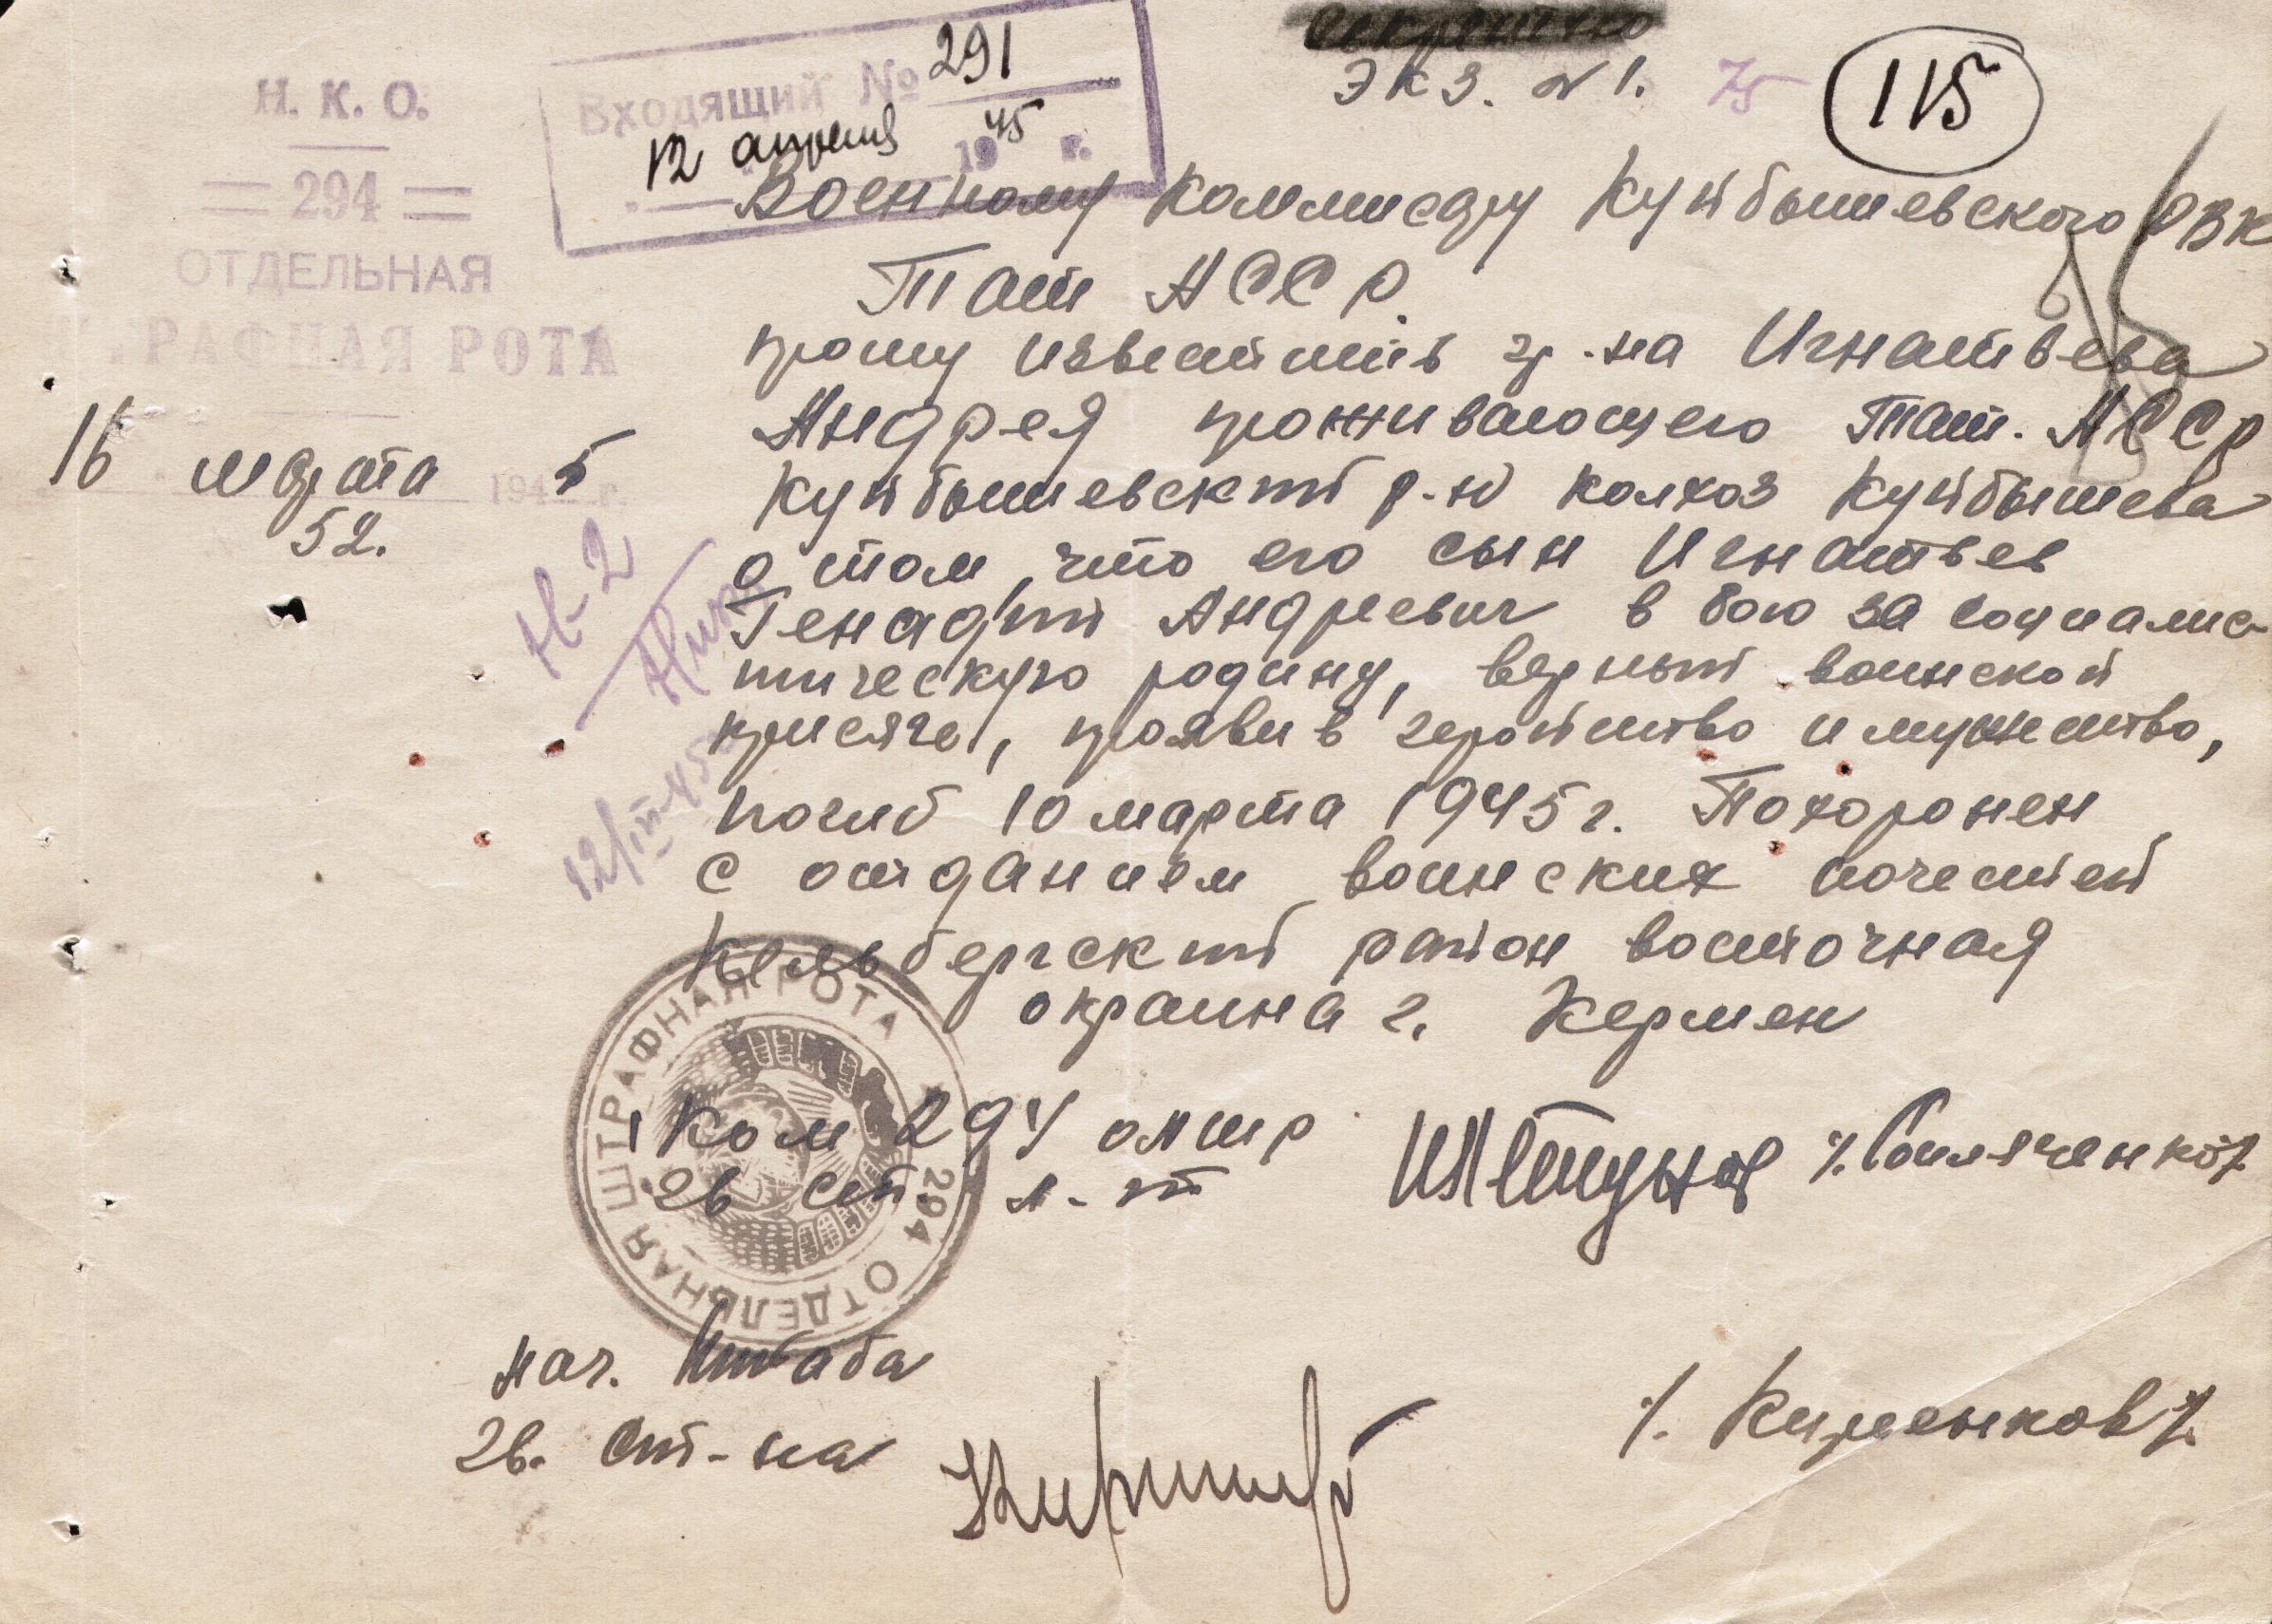 Н. К. О.
294
ОТДЕЛЬНАЯ
РАФНАЯ РОТА
16 марта 1945 г.
52.
Входящий № 291
12 апреля 1945 г.
экз. № 1.
75
115
Военному Коммисару Куйбышевского РВК
Тат АССР.
прошу известить гр-на Игнатьева
Андрея проживающего Тат. АССР
Куйбышевский р-н колхоз Куйбышева
о том, что его сын Игнатьев
Генадий Андреевич в бою за социалис-
тическую родину, верный воинской
присяге, проявив геройство и мужество,
погиб 10 марта 1945 г. Похоронен
с отданием воинских почестей
Кельбергский район восточная
окраина г. Кермен
Н-2
12/III-45
Ком 294 ошр
гв ст. л-т
294 ОТДЕЛЬНАЯ ШТРАФНАЯ РОТА
Нач. Штаба
гв. ст-на
/. Кирсенков/.